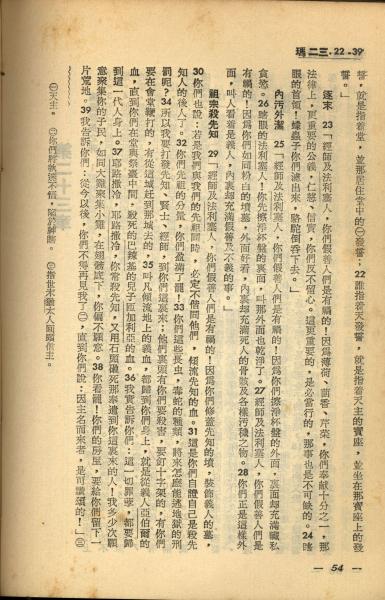 瑪二三．22．39
誓，就是指着堂，並那居住堂中的㊀發誓，22誰指着天發誓，就是指着天主的寶座，並坐在那寶座上的發
誓。」
逐末　23「經師及法利塞人，你們假善人們是有禍的！因爲薄荷、茴香、芹菜，你們奉獻十分之一，那
法律上，更重要的公義、仁慈、信實，你們反不留心。這更重要的，是必當行的，那事也是不可缺的。24瞎
眼的首領！蠓蟲子你們濾出來，駱駝倒吞下去。」
內汚外潔　25「經師及法利塞人，你們假善人們是有禍的！因爲你們擦淨杯盤的外面，裏面却充滿贓私
貪慾。26瞎眼的法利塞人！你先擦淨杯盤的裏面，叫那外面也乾淨了。27經師及法利塞人，你們假善人們是
有禍的！因爲你們如同粉白的墳墓，外面好看，內裏却充滿死人的骨骸及各樣汚穢之物。28你們正是這樣外
面，叫人看着是義人，內裏却充滿假善及不義的事。」
祖宗殺先知　29「經師及法利塞人，你們假善人們是有禍的！因爲你們修蓋先知的墳，裝飾義人的墓，
30你們也說：若是我們與我們的先祖同時，必定不偕同他們，傾流先知的血。31這是你們自證自己是殺先
知人的後人了。32你們先祖的惡量，你們盈滿了罷！33你們這些長虫，毒蛇的種類，將來怎麼能逃地獄的刑
罰呢？34所以我要打發先知、賢士、經師，到你們這裏來；他們裏頭有你們要殺害，要釘十字架的，有你們
要在會堂鞭打的，有從這城趕到那城去的，35叫凡傾流地上的義血，都歸到你們身上，就是從義人亞伯爾的
血，直到你們在堂與祭臺中間，殺死的巴辣基的兒子匝加利亞的血。36我實告訴你們：這一切罪孽，都要歸
到這一代人身上。37耶路撒冷，耶路撒冷，你常殺先知，又用石頭礮死那奉遣到你這裏來的人！我多少次願
意聚集你的子民，如同大雞聚集小雞，在翅膀底下，你偏不願意。38你看罷！你們的房屋，要給你們留下一
片荒地。39我告訴你們：從今以後，你們不得再見我了㊁，直到你們說：因主名而來者，是可讚頌的！」㊂
㊀天主。　㊁你們將執迷不信，陷於滅亡。　㊂指世末猶太人回頭信主。
— 54 —